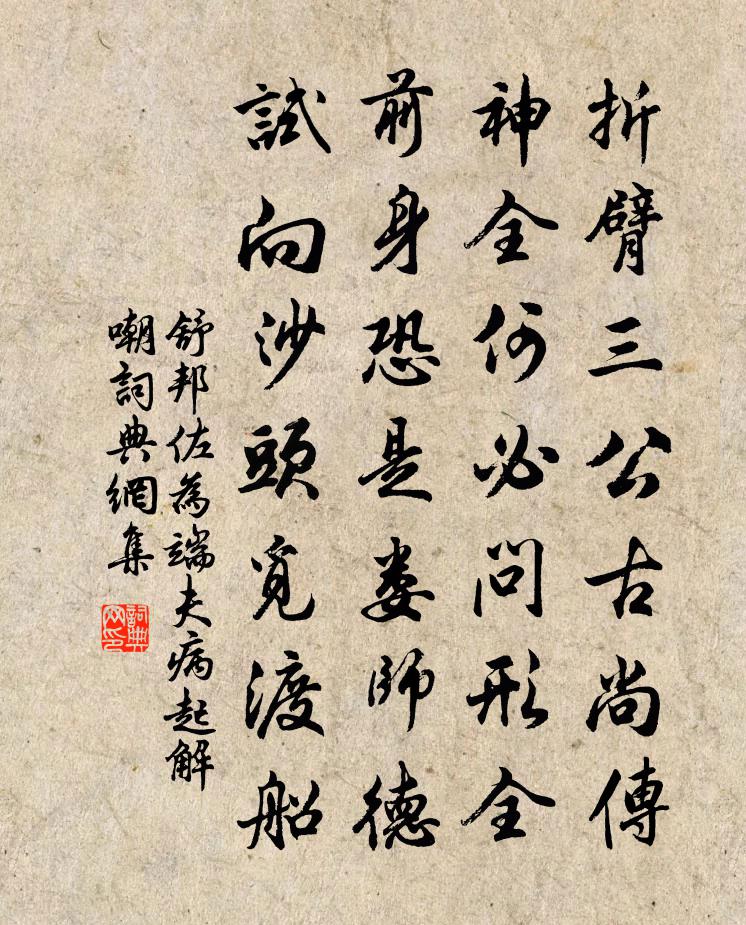 折臂三公古尚傳
神全何必問形全
前身恐是婁師德
試向沙頭覓渡船
舒邦佐為端夫病起解
嘲詞典網集
詞典網印